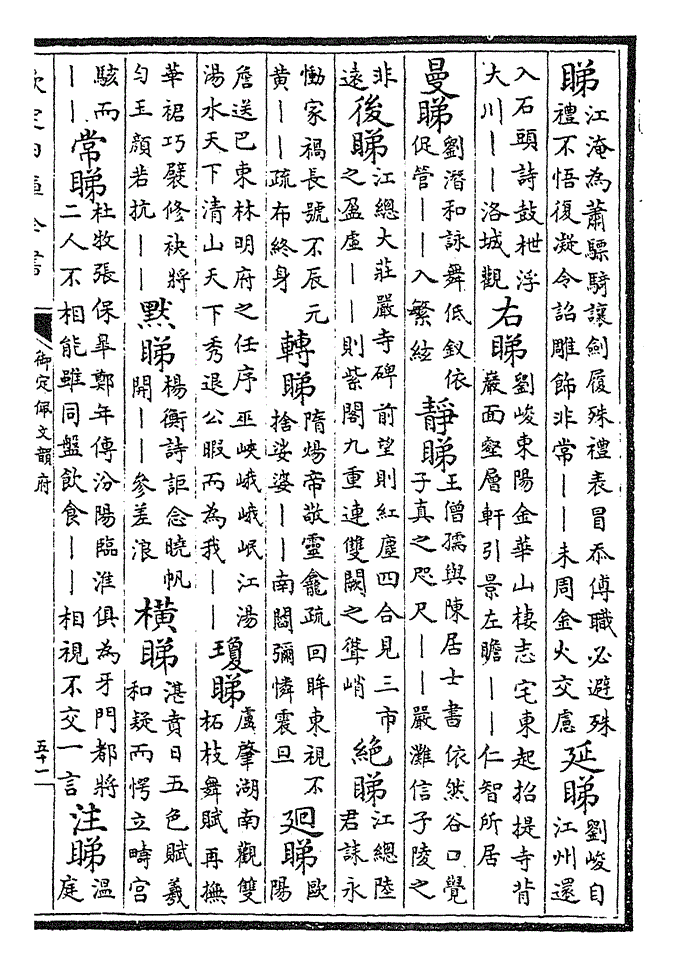 睇
江淹為蕭驃騎讓劍履殊禮表冒忝傅職必避殊
禮不悟復凝令詔雕飾非常——未周金火交慮
延睇
劉峻自
江州還
入石頭詩鼓枻浮
大川——洛城觀
右睇
劉峻東陽金華山棲志宅東起招提寺背
巖面壑層軒引景左瞻——仁智所居
曼睇
劉潛和詠舞低釵依
促管——入繁絃
靜睇
王僧孺與陳居士書依然谷口覺
子真之咫尺——嚴灘信子陵之
非
遠
後睇
江總大莊嚴寺碑前望則紅塵四合見三市
之盈虛——則紫閣九重連雙闕之聳峭
絶睇
江總陸
君誄永
慟家禍長號不辰元
黄——疏布終身
轉睇
隋煬帝敬靈龕疏回眸東視不
捨娑婆——南閻彌憐震旦
廻睇
歐
陽
詹送巴東林明府之任序巫峽峨峨岷江湯
湯水天下清山天下秀退公暇而為我——
瓊睇
盧肇湖南觀雙
柘枝舞賦再撫
華裙巧襞修袂將
勻玉顔若抗——
默睇
楊衡詩詎念曉帆
開——參差浪
橫睇
湛賁日五色賦羲
和疑而愕立疇宫
駭而
——
常睇
杜牧張保皋鄭年傳汾陽臨淮俱為牙門都將
二人不相能雖同盤飲食——相視不交一言
注睇
温
庭
欽定四庫全書
御定佩文韻府
五十一